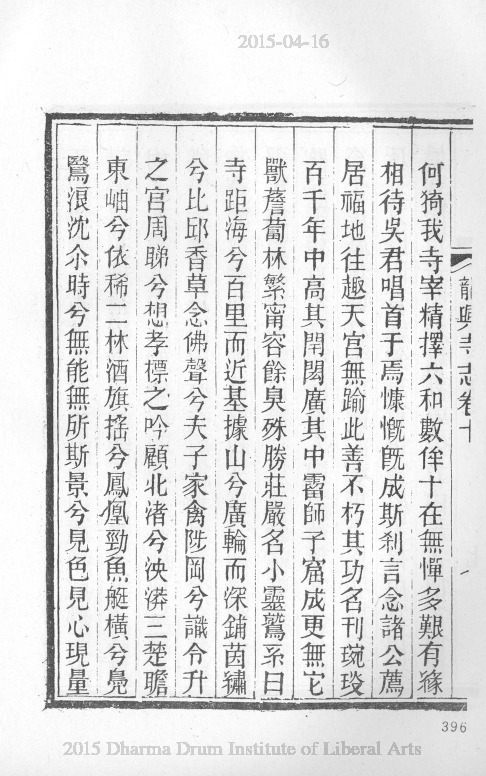 2015-04-16
龍興寺志卷十
何猗我寺宰精擇六和數侔十在無憚多艱有緣
相待吳君唱首于焉慷慨旣成斯剎言念諸公薦
居福地往趣天宮無踰此善不朽其功名刊琬琰
百千年中高其閈閎廣其中霤師子窟成更無它
獸薝蔔林繁甯容餘臭殊勝莊嚴名小靈鷲系曰
寺距海兮百里而近基據山兮廣輪而深鋪茵繡
兮比邱香草念佛聲兮夫子家禽陟岡兮識令升
之宮周睇兮想孝標之吟顧北渚兮泱漭三楚瞻
東岫兮依稀二林酒旗搖兮鳳凰勁魚艇橫兮鳧
鷖浪沈尒時兮無能無所斯景兮見色見心現量
396
2015 Dharma Drum Institute of Liberal Arts